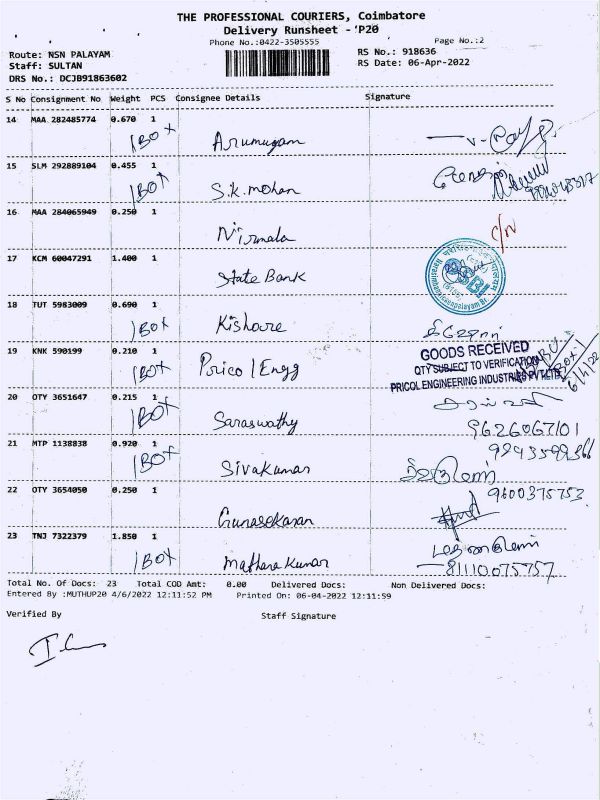 THE PROFESSIONAL COURIERS, Coimbatore
Delivery Runsheet - 'P20
Phone No.:0422-3505555
Page No.:2
Route: NSN PALAYAM
Staff: SULTAN
DRS No.: DCJB91863602
RS No.: 918636
RS Date: 06-Apr-2022
S No Consignment No Weight PCS Consignee Details Signature
14 MAA 282485774 0.670 1
1 BOX Arumugam
15 SLM 292889104 0.455 1
1 BOX S.K. mohan
16 MAA 284065949 0.250 1
Nirmala
C/N
17 KCM 60047291 1.400 1
State Bank
18 TUT 5983009 0.690 1
1 BOX Kishore
19 KNK 590199 0.210 1
1 BOX Prico l Engg
GOODS RECEIVED
QTY SUBJECT TO VERIFICATION
PRICOL ENGINEERING INDUSTRIES PVT LTD
6/4/22
20 OTY 3651647 0.215 1
1 BOX Saraswathy
9626067101
21 MTP 1138838 0.920 1
1 BOX Sivakumar
9943599366
22 OTY 3654050 0.250 1
Gunasekaran
9600375753
23 TNJ 7322379 1.850 1
1 BOX Mathanakumar
81110075757
Total No. Of Docs: 23 Total COD Amt: 0.00 Delivered Docs: Non Delivered Docs:
Entered By :MUTHUP20 4/6/2022 12:11:52 PM Printed On: 06-04-2022 12:11:59
Verified By Staff Signature